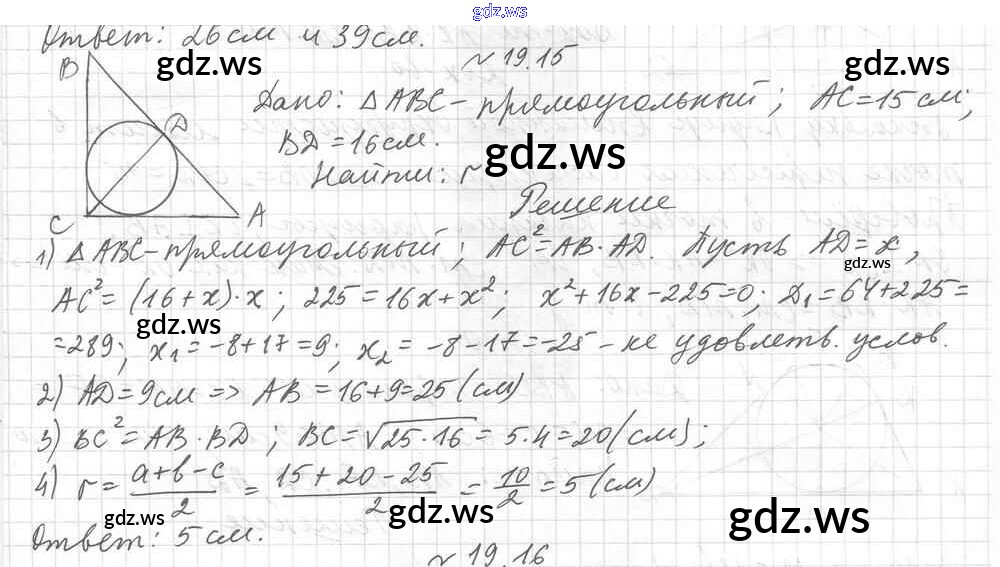 gdz.ws
Ответ: 26 см и 39 см.
№ 19.15
B
D
C
A
Дано: △ABC - прямоугольный; AC = 15 см;
BD = 16 см.
Найти: r
Решение
1) △ABC - прямоугольный; AC² = AB · AD. Пусть AD = x,
AC² = (16 + x) · x; 225 = 16x + x²; x² + 16x - 225 = 0; D₁ = 64 + 225 =
= 289; x₁ = -8 + 17 = 9; x₂ = -8 - 17 = -25 - не удовлетв. услов.
2) AD = 9 см => AB = 16 + 9 = 25 (см)
3) BC² = AB · BD; BC = √25 · 16 = 5 · 4 = 20 (см);
4) r = (a + b - c)/2 = (15 + 20 - 25)/2 = 10/2 = 5 (см)
Ответ: 5 см.
№ 19.16
gdz.ws
gdz.ws
gdz.ws
gdz.ws
gdz.ws
gdz.ws
gdz.ws
gdz.ws